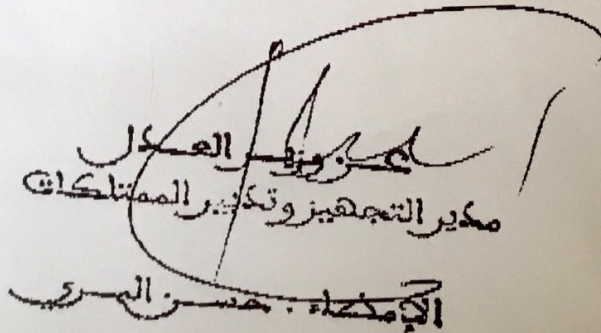 عن وزير العدل
مدير التجهيز وتدبير الممتلكات
الإمضاء : حسن المري